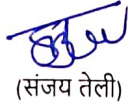 (संजय तेली)